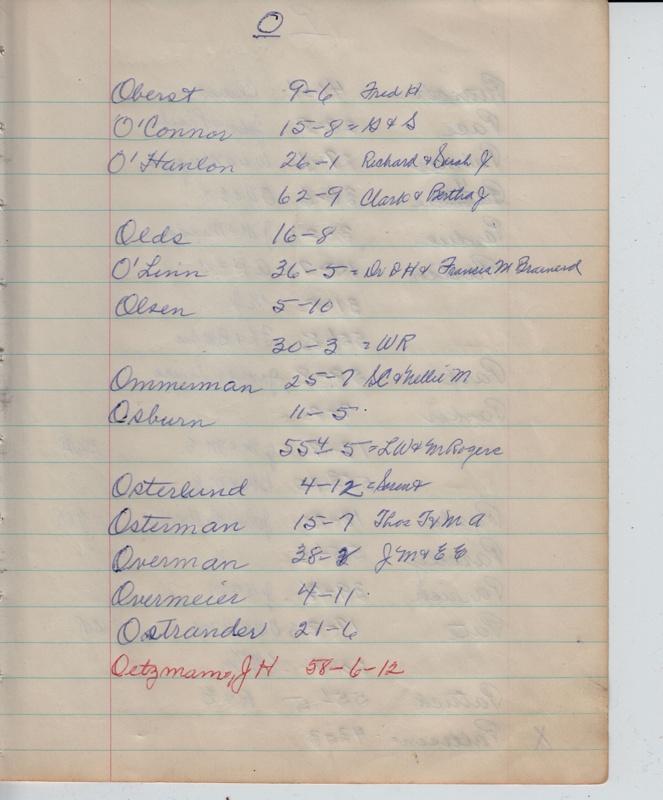 O
Oberst 9-6 Fred H.
O'Connor 15-8 = & S
O'Hanlon 26-1 Richard & Sarah J
62-9 Clark & Bertha J
Olds 16-8
O'Linn 36-5 = Dr D H & Francis M Brainerd
Olsen 5-10
30-3 = WR
Ommerman 25-7 & Nellie M
Osburn 11-5
55 5 = LW & M Rogers
Osterlund 4-12 =
Osterman 15-7 Thos T & M A
Overman 38-2 J M & E E
Overmeier 4-11
Ostrander 21-6
Oetzmann, J H 58-6-12